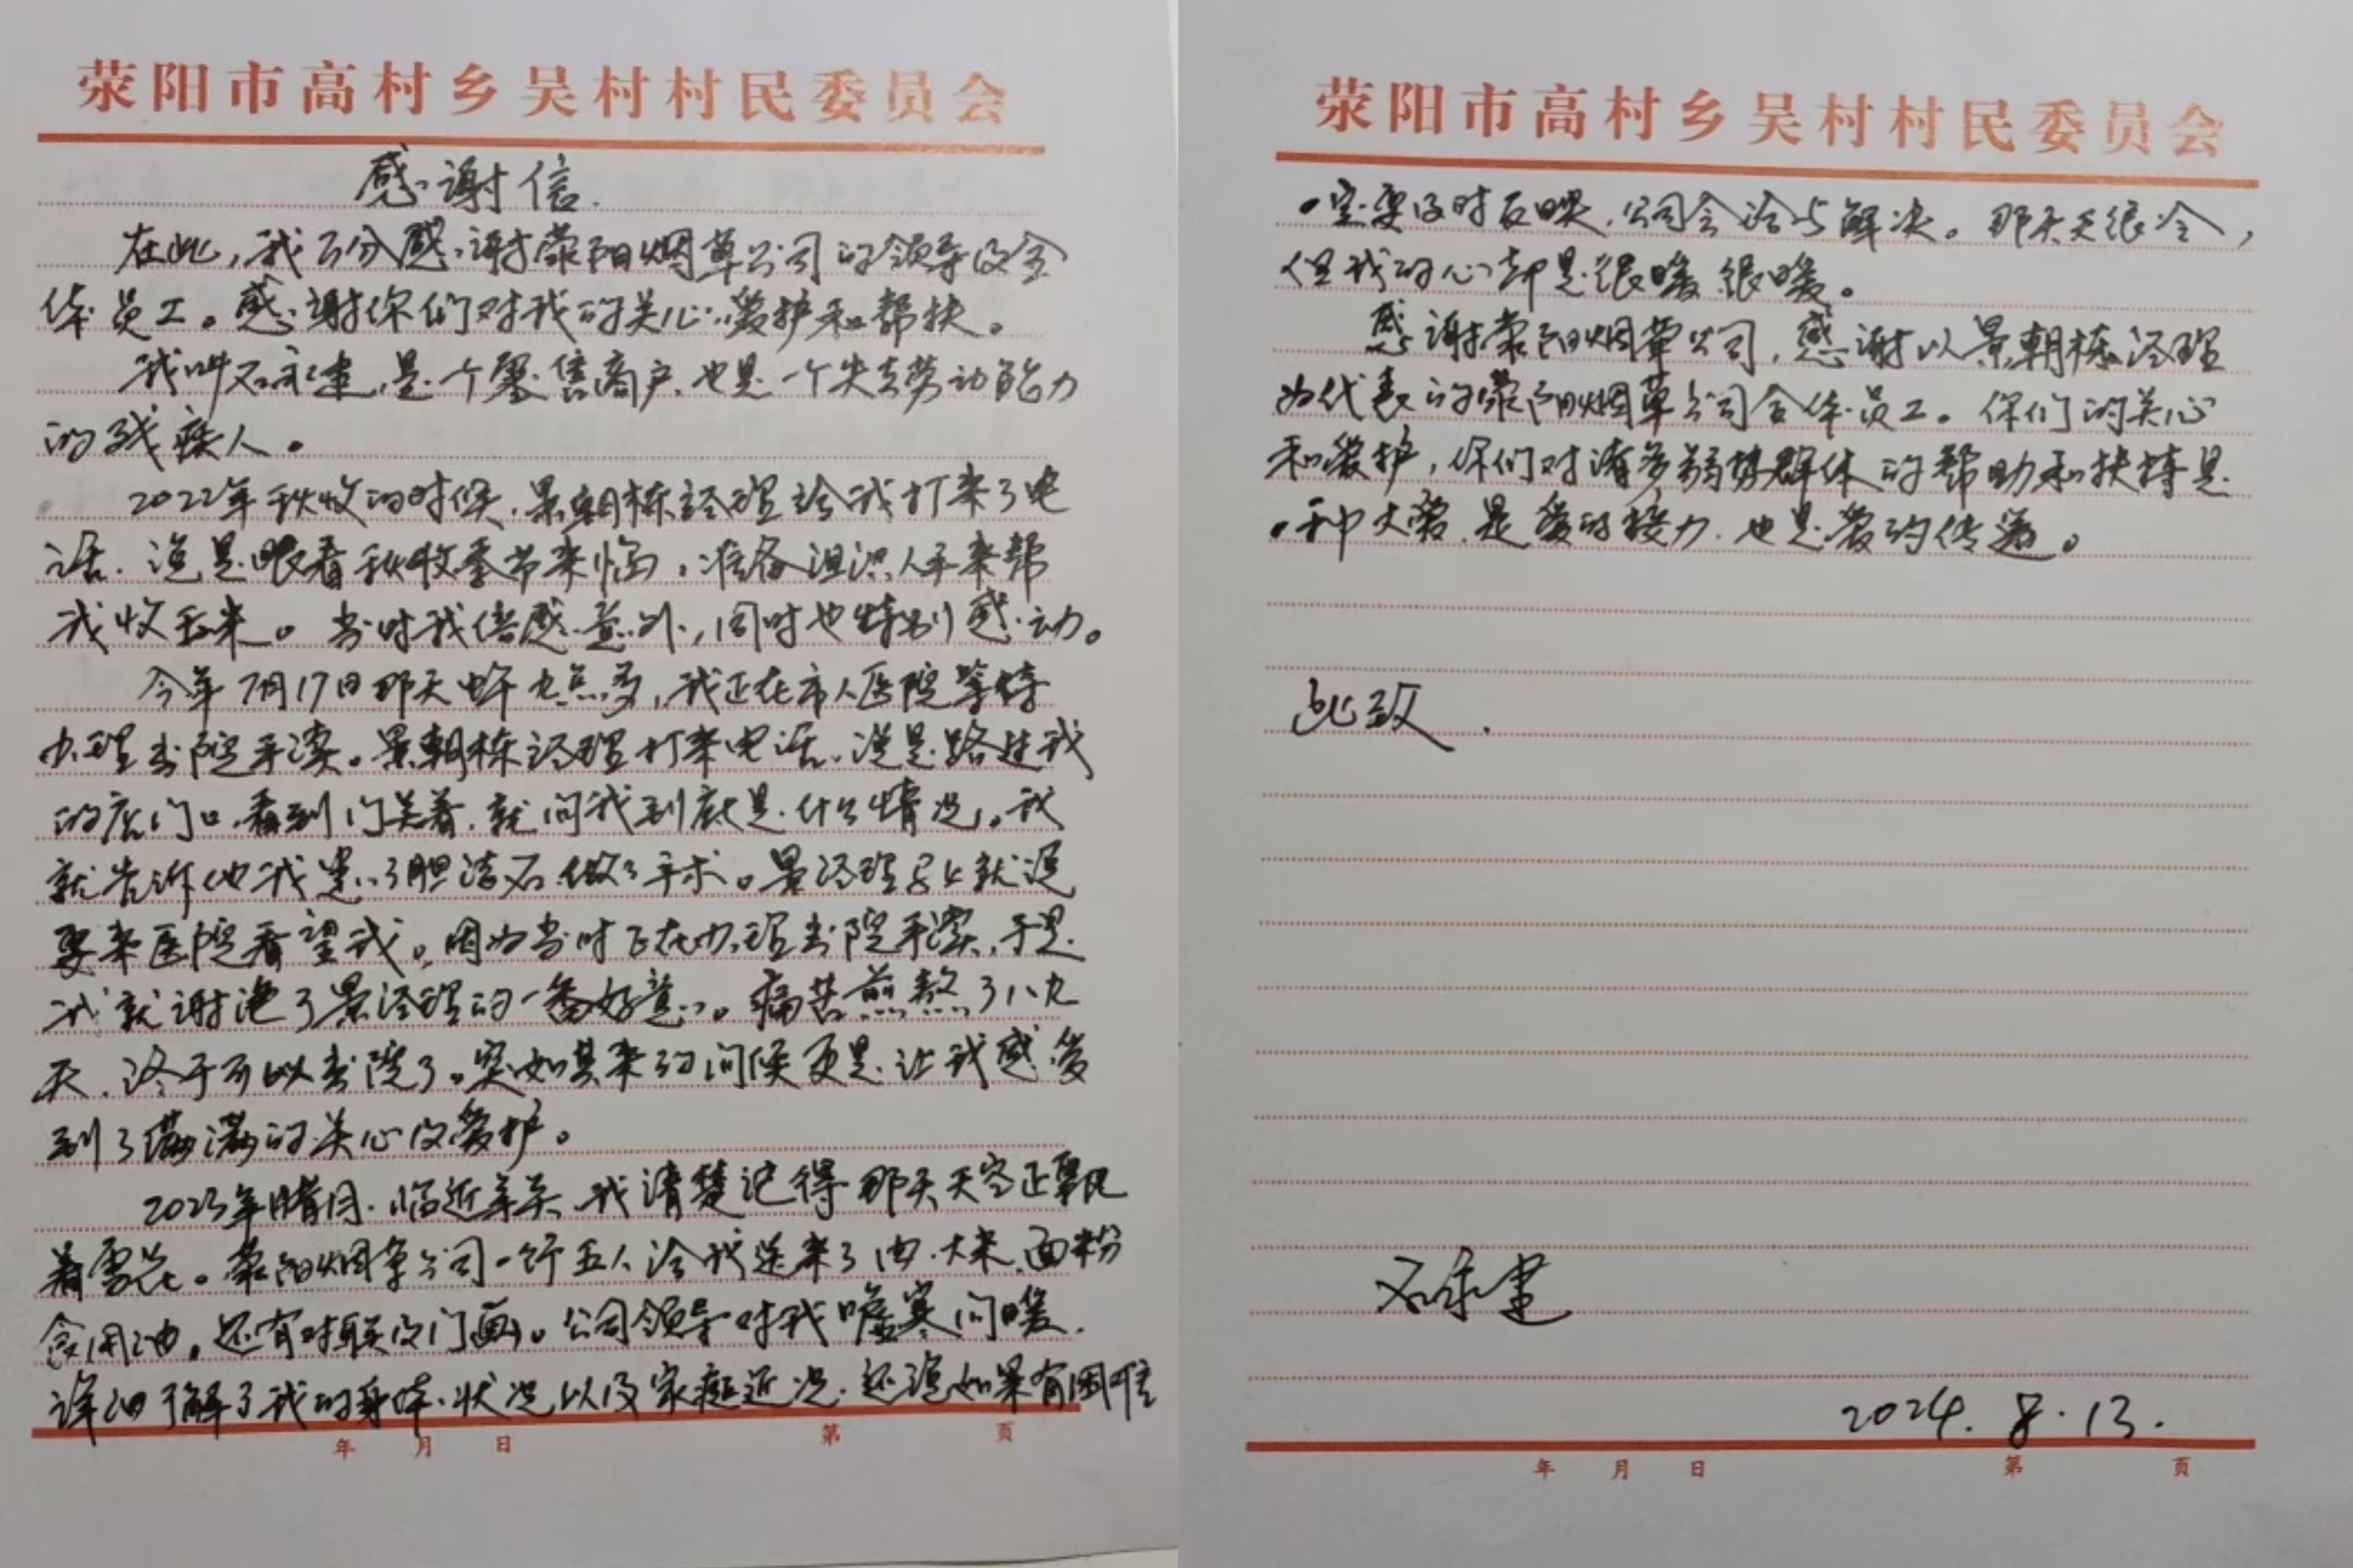 荥阳市高村乡吴村村民委员会
感谢信.
在此,我万分感谢荥阳烟草公司的领导及全
体员工。感谢你们对我的关心爱护和帮扶。
我叫石永建,是一个零售商户,也是一个失去劳动能力
的残疾人。
2022年秋收的时候,景朝栋经理给我打来了电
话,说是眼看秋收季节来临,准备组织人手来帮
我收玉米。当时我倍感意外,同时也特别感动。
今年7月17日那天上午九点多,我正在市人医院等待
办理出院手续。景朝栋经理打来电话,说是路过我
的店门口,看到门关着,就问我到底是什么情况。我
就告诉他我患了胆结石做了手术。景经理马上就说
要来医院看望我。因为当时正在办理出院手续,于是
我就谢绝了景经理的一番好意。痛苦煎熬了八九
天,终于可以出院了。突如其来的问候更是让我感受
到了满满的关心及爱护。
2023年腊月,临近年关,我清楚记得那天天空正飘
着雪花。荥阳烟草公司一行五人给我送来了肉,大米,面粉
食用油,还有对联及门画。公司领导对我嘘寒问暖,
详细了解了我的身体状况以及家庭近况,还说如果有困难
年 月 日 第 页
荥阳市高村乡吴村村民委员会
一定要及时反映,公司会给与解决。那天天很冷,
但我的心却是很暖很暖。
感谢荥阳烟草公司,感谢以景朝栋经理
为代表的荥阳烟草公司全体员工。你们的关心
和爱护,你们对诸多弱势群体的帮助和扶持是
一种大爱,是爱的接力,也是爱的传递。
此致.
石永建
2024.8.13.
年 月 日 第 页